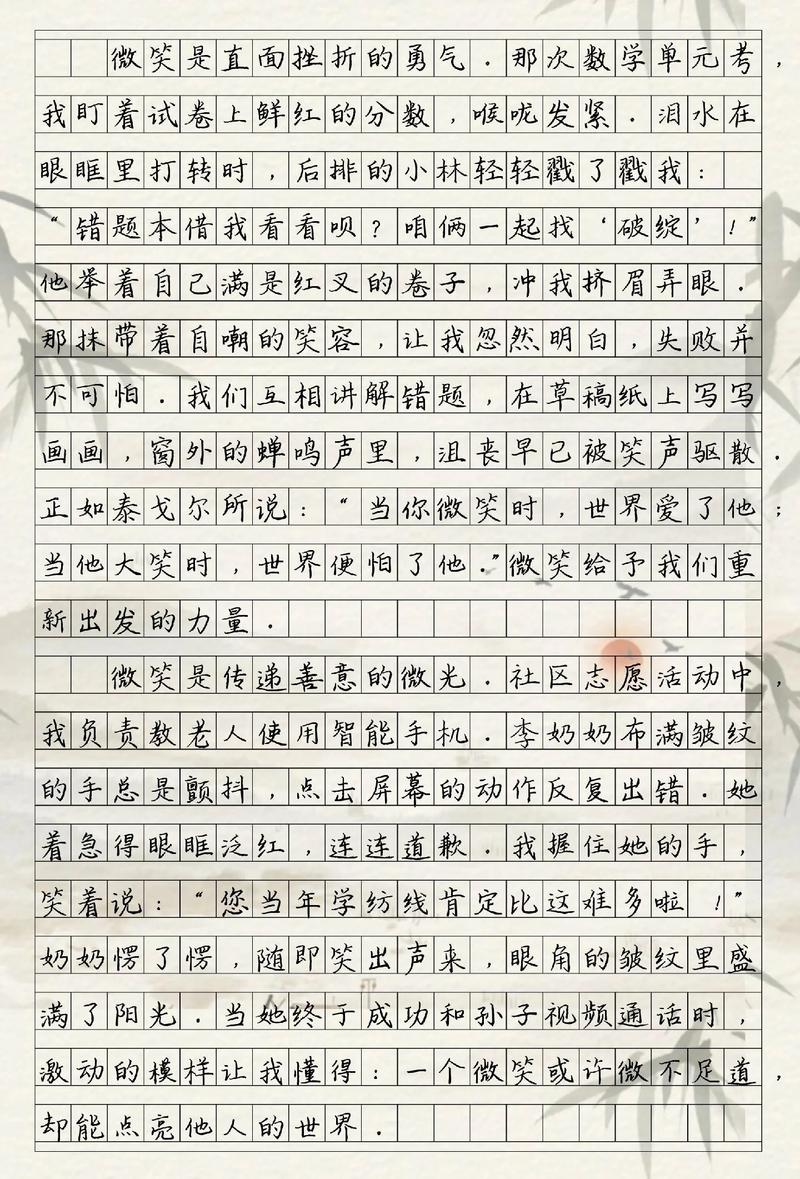 微笑是直面挫折的勇气．那次数学单元考，
我盯着试卷上鲜红的分数，喉咙发紧．泪水在
眼眶里打转时，后排的小林轻轻戳了戳我：
“错题本借我看看呗？咱俩一起找‘破绽’！”
他举着自己满是红叉的卷子，冲我挤眉弄眼．
那抹带着自嘲的笑容，让我忽然明白，失败并
不可怕．我们互相讲解错题，在草稿纸上写写
画画，窗外的蝉鸣声里，沮丧早已被笑声驱散．
正如泰戈尔所说：“当你微笑时，世界爱了他；
当他大笑时，世界便怕了他．”微笑给予我们重
新出发的力量．
微笑是传递善意的微光．社区志愿活动中，
我负责教老人使用智能手机．李奶奶布满皱纹
的手总是颤抖，点击屏幕的动作反复出错．她
着急得眼眶泛红，连连道歉．我握住她的手，
笑着说：“您当年学纺线肯定比这难多啦！”
奶奶愣了愣，随即笑出声来，眼角的皱纹里盛
满了阳光．当她终于成功和孙子视频通话时，
激动的模样让我懂得：一个微笑或许微不足道，
却能点亮他人的世界．